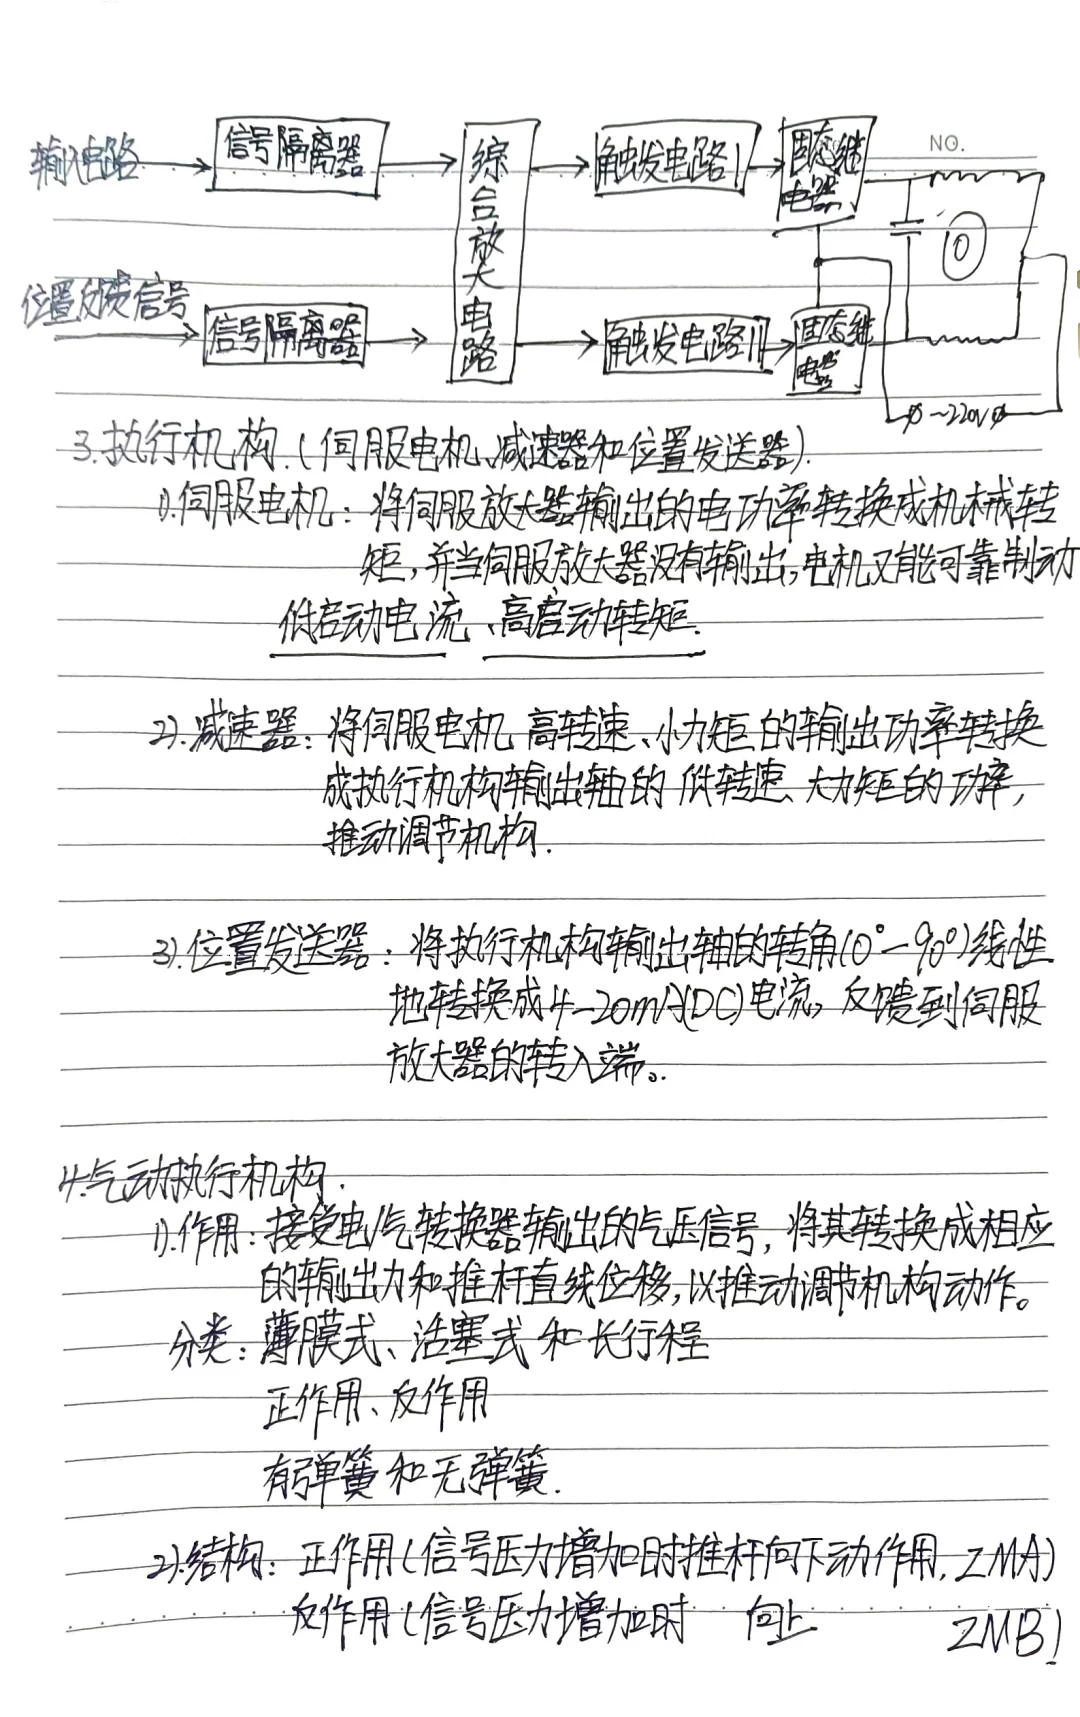 NO.
输入电路 信号隔离器 综合放大电路 触发电路I 固态继电器
位置反馈信号 信号隔离器 触发电路II 固态继电器
~220V
3.执行机构.(伺服电机、减速器和位置发送器).
1).伺服电机:将伺服放大器输出的电功率转换成机械转
矩,并当伺服放大器没有输出,电机又能可靠制动
低启动电流、高启动转矩.
2).减速器:将伺服电机高转速、小力矩的输出功率转换
成执行机构输出轴的低转速、大力矩的功率,
推动调节机构.
3).位置发送器:将执行机构输出轴的转角(0°-90°)线性
地转换成4-20mA(DC)电流,反馈到伺服
放大器的转入端。
4.气动执行机构.
1).作用:接受电/气转换器输出的气压信号,将其转换成相应
的输出力和推杆直线位移,以推动调节机构动作。
分类:薄膜式、活塞式和长行程
正作用、反作用
有弹簧和无弹簧.
2).结构:正作用(信号压力增加时推杆向下动作用,ZMA)
反作用(信号压力增加时 向上 ZMB)